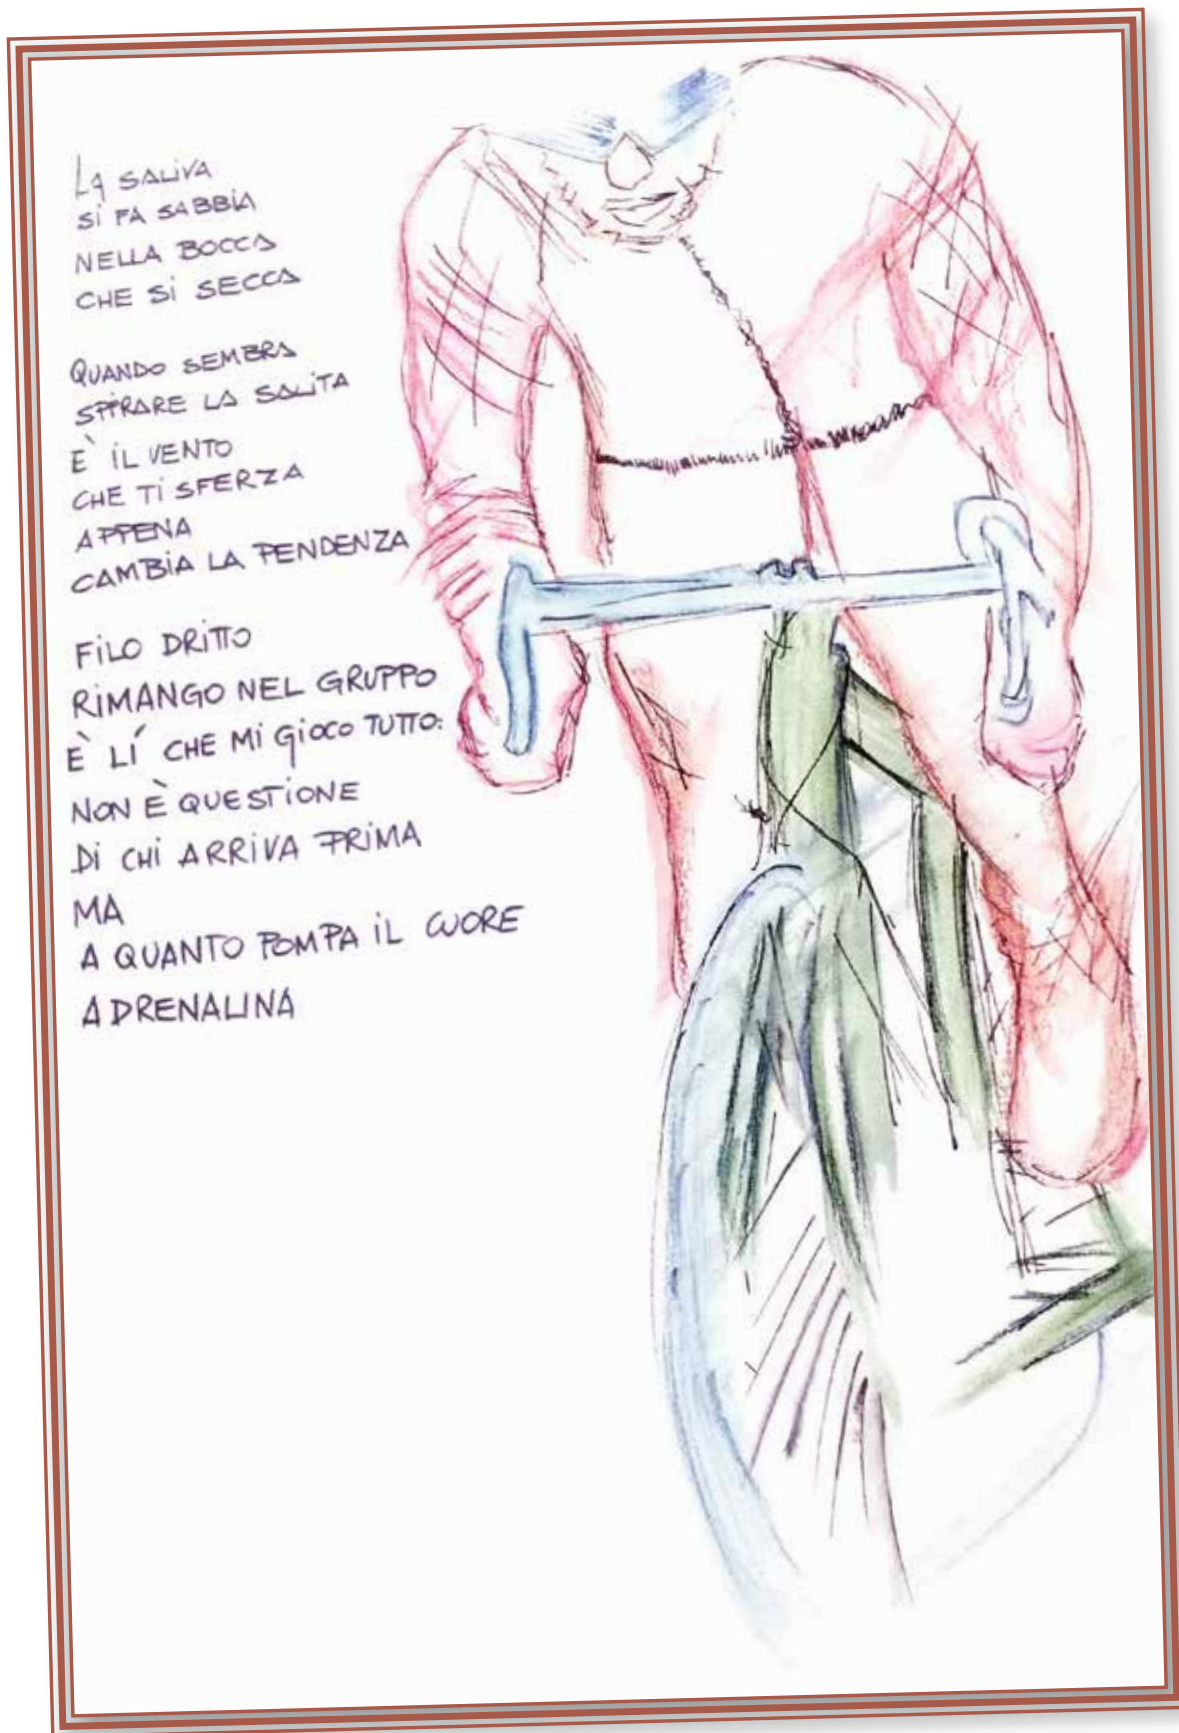 LA SALIVA
SI FA SABBIA
NELLA BOCCA
CHE SI SECCA
QUANDO SEMBRA
SPIRARE LA SALITA
E' IL VENTO
CHE TI SFERZA
APPENA
CAMBIA LA PENDENZA
FILO DRITTO
RIMANGO NEL GRUPPO
È LÍ CHE MI GIOCO TUTTO:
NON È QUESTIONE
DI CHI ARRIVA PRIMA
MA
A QUANTO POMPA IL CUORE
ADRENALINA